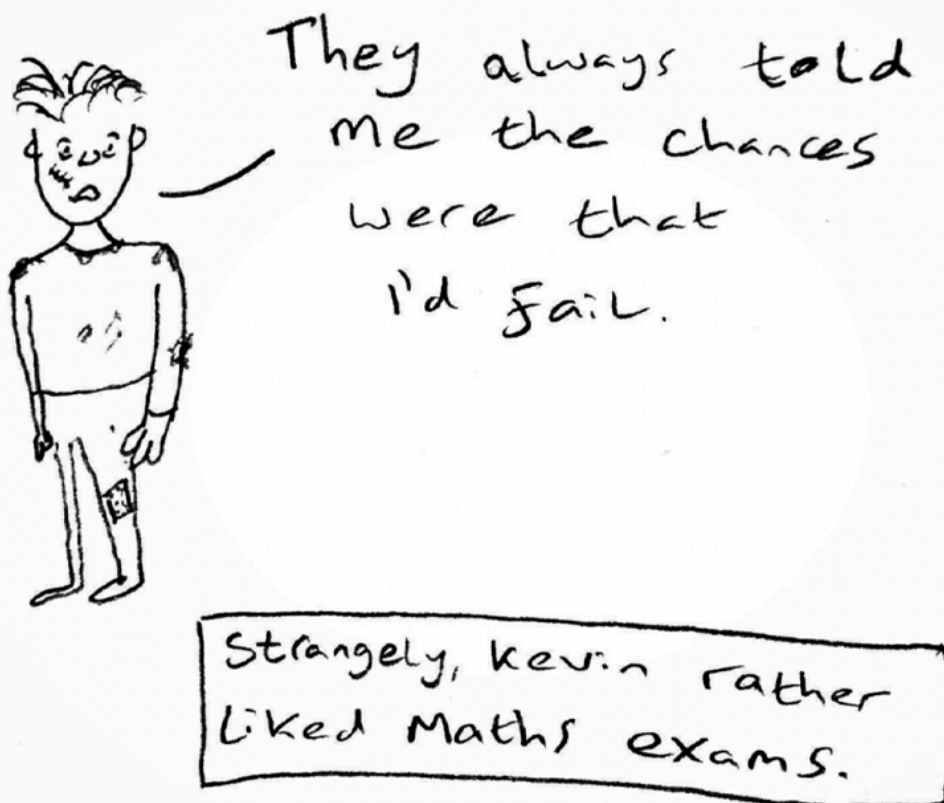 They always told
me the chances
were that
I'd fail.
Strangely, Kevin rather
Liked Maths exams.